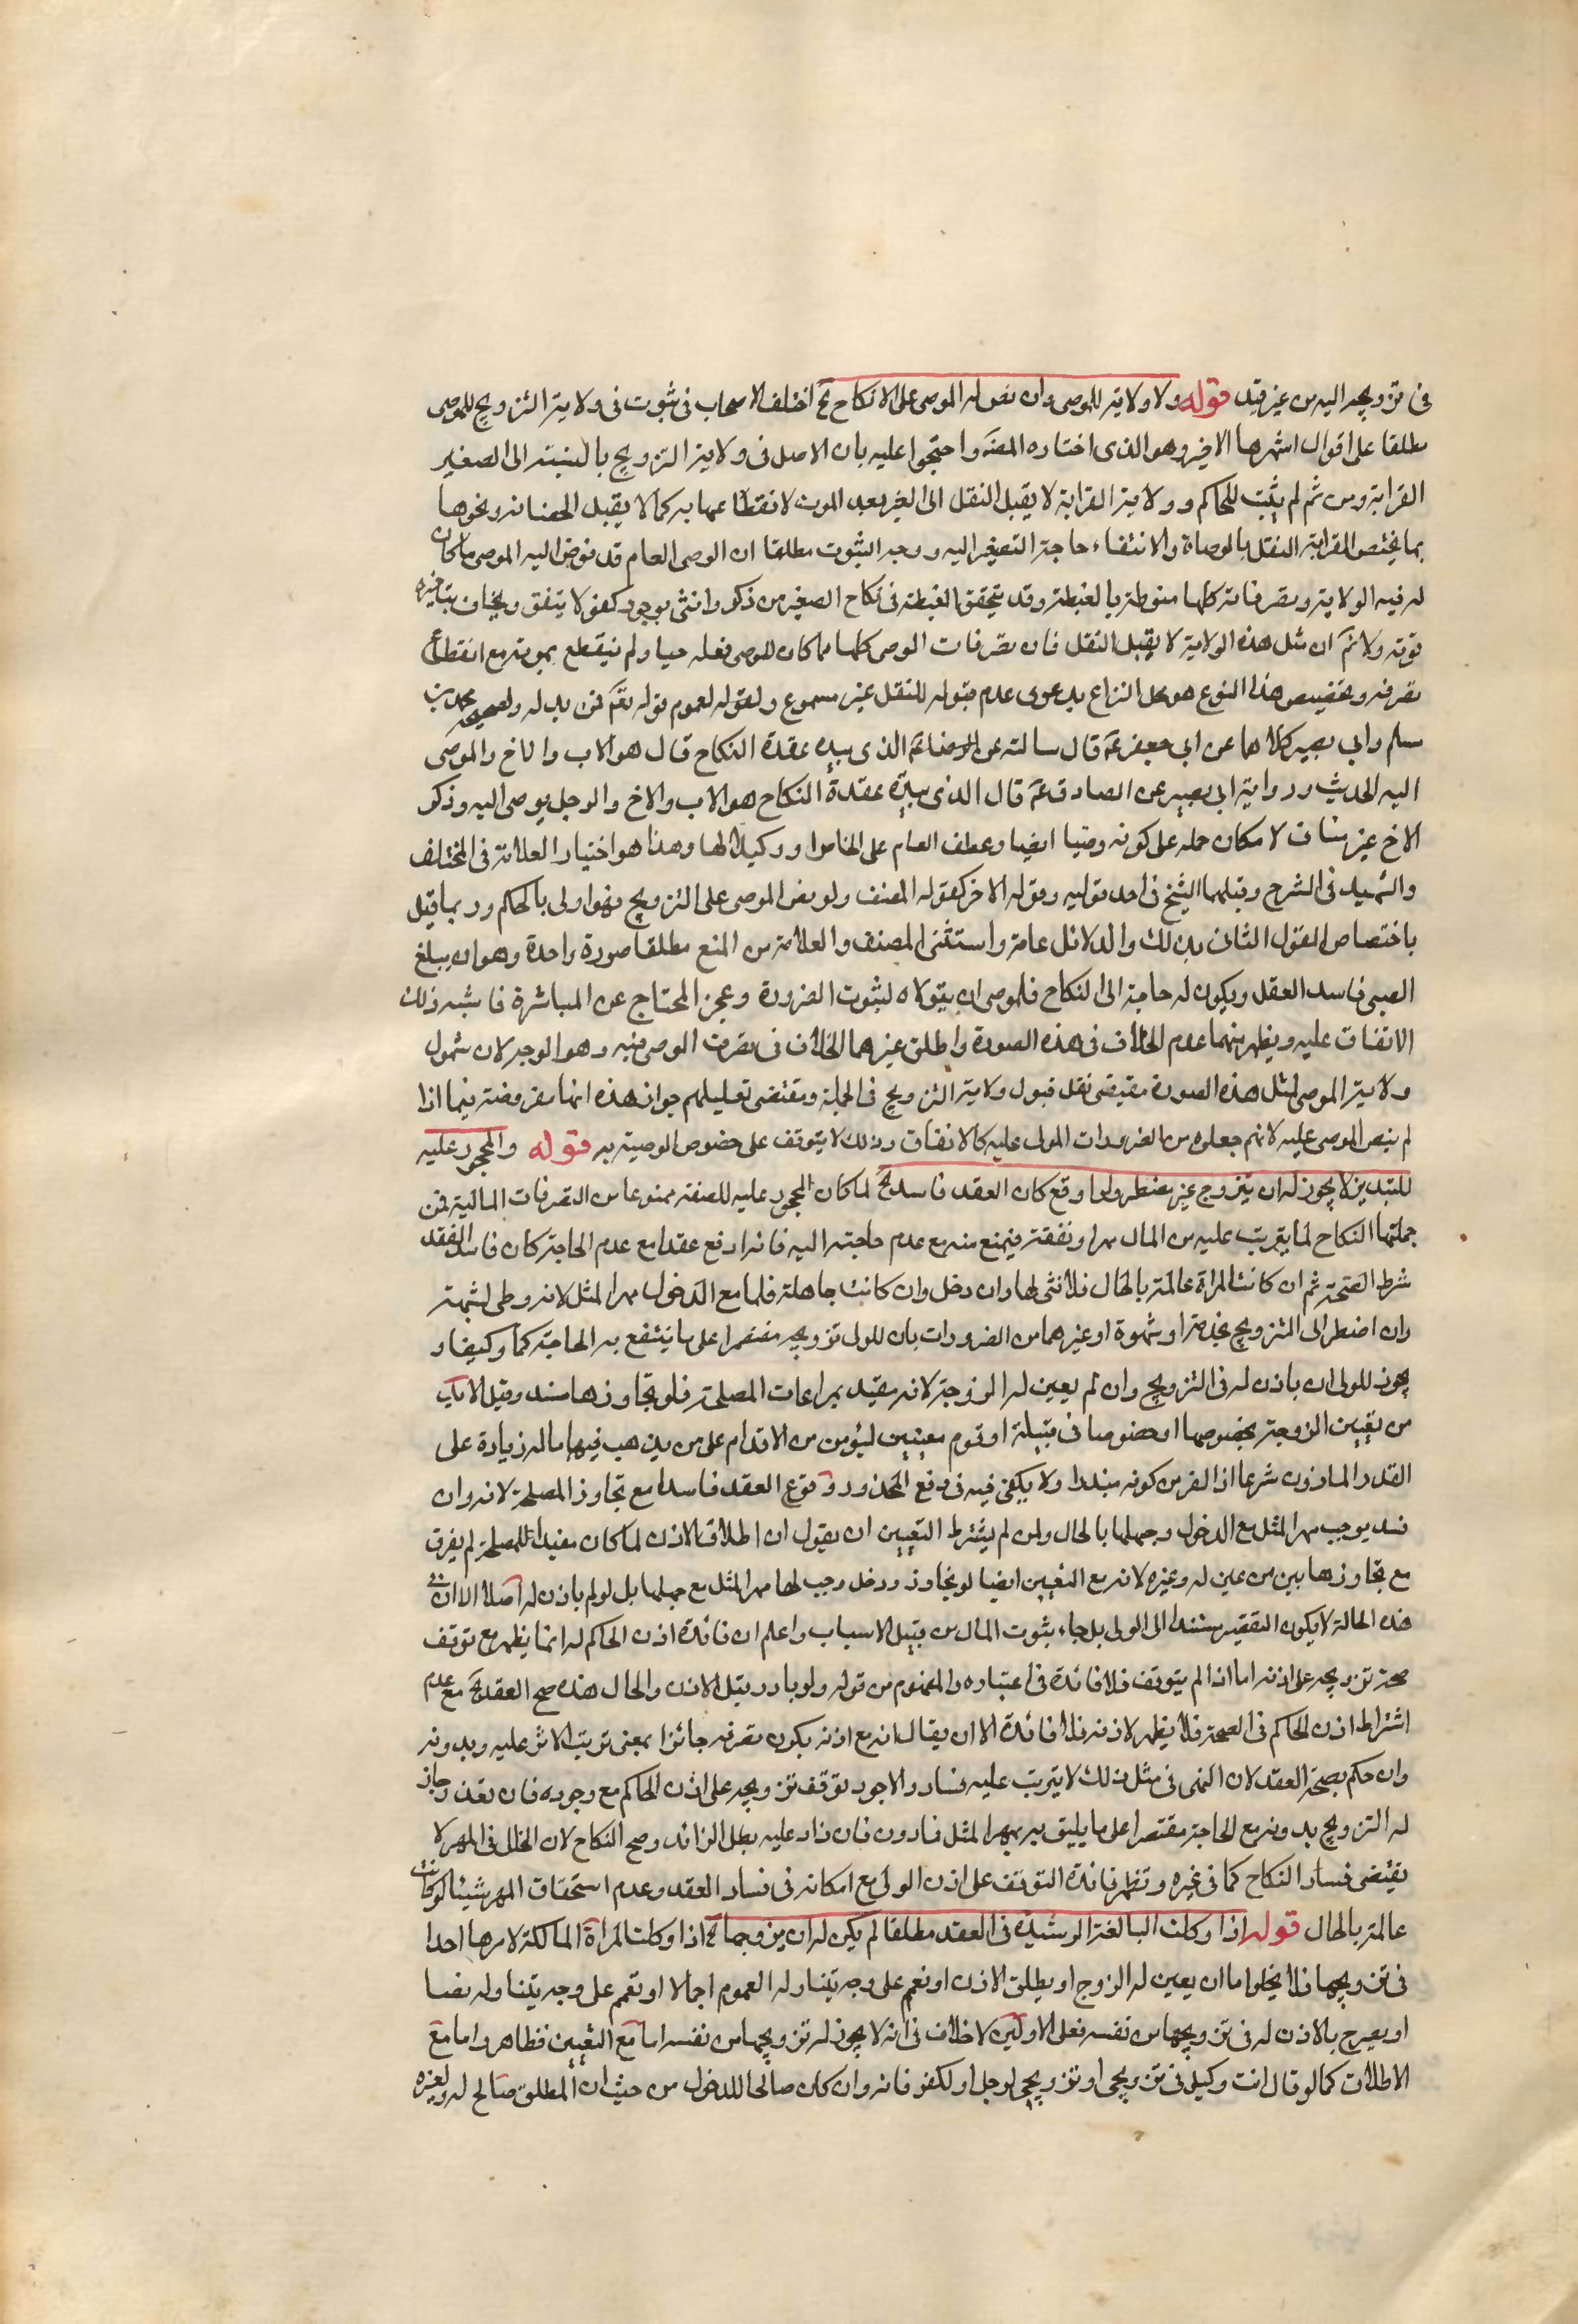 في تزويجه اليه من غير قيد قوله ولا ولاية للوصي وان نص له الموصي على الانكاح الخ اختلف الاصحاب في ثبوت في ولاية التزويج للوصي
مطلقا على اقوال اشهرها الاخير وهو الذي اختاره المصه واحتجوا عليه بان الاصل في ولاية التزويج بالنسبة الى الصغير
القرابة ومن ثم لم يثبت للحاكم وولاية القرابة لا يقبل النقل الى الغير بعد الموت لانقطاعها به كما لا يقبل الحضانه ونحوها
بما يختص القرابة النقل بالوصاة والانتفاء حاجة الصغير اليه ووجه الثبوت مطلقا ان الوصي العام قد فوض اليه الموصي ما كان
له فيه الولاية وتصرفاته كلها منوطة بالغبطة وقد يتحقق الغبطة في نكاح الصغير من ذكر وانثى بوجود كفو لا يتفق ويخاف بتاخيره
فوته ولا نم ان مثل هذه الولاية لا يقبل النقل فان تصرفات الوصي كلها مما كان للموصي فعله حيا ولم ينقطع بموته مع انقطاع
تصرفه وتخصيص هذا النوع هو محل النزاع بدعوى عدم قبوله للنقل غير مسموع ولقوله لعموم قوله تعم فمن بدله ولصحيحة محمد بن
مسلم وابي بصير كلاهما عن ابي جعفر عم قال سالته عن الذي بيده عقدة النكاح قال هو الاب والاخ والموصى
اليه الحديث ورواية ابي بصير عن الصادق عم قال الذي بيده عقدة النكاح هو الاب والاخ والرجل يوصى اليه وذكر
الاخ غير مناف لامكان حمله على كونه وصيا ايضا وعطف العام على الخاص او وكيلا لها وهذا هو اختيار العلامة في المختلف
والشهيد في الشرح وقبلهما الشيخ في احد قوليه وقوله الاخر كقوله المصنف ولو نص الموصي على التزويج فهو اولى بالحاكم وربما قيل
باختصاص القول الثاني بذلك والدلائل عامة واستثنى المصنف والعلامة من المنع مطلقا صورة واحدة وهو ان يبلغ
الصبي فاسد العقل ويكون له حاجة الى النكاح فللوصي ان يتولاه لثبوت الضرورة وعجز المحتاج عن المباشرة فاشبه ذلك
الانفاق عليه ويظهر منهما عدم الخلاف في هذه الصورة واطلق غيرهما الخلاف في تصرف الوصي فيه وهو الوجه لان شمول
ولاية الموصي لمثل هذه الصورة مقتضى نقل قبول ولاية التزويج في الجملة ومقتضى تعليلهم جواز هذه انها مفروضة فيما اذا
لم ينص الموصي عليه لانهم جعلوه من الضرورات المولى عليه كالانفاق وذلك لا يتوقف على خصوص الوصية به قوله والمحجور عليه
للتبذير لا يجوز له ان يتزوج غير مضطر ولو اوقع كان العقد فاسد الخ لما كان المحجور عليه للسفه ممنوعا من التصرفات المالية فمن
جملتها النكاح لما يترتب عليه من المال مهرا ونفقة فيمنع منه مع عدم حاجته اليه فانه اوقع عقدا مع عدم الحاجة كان فاسدا لفقد
شرط الصحة ثم ان كانت المراة عالمة بالحال فلا شي لها وان دخل وان كانت جاهلة فلها مع الدخول مهر المثل لانه وطي لشبهة
وان اضطر الى التزويج بخدمة او شهوة او غيرهما من الضرورات بان للولي تزويجه مقتصرا على ما يندفع به الحاجة كما وكيفا و
يجوز للولي ان ياذن له في التزويج وان لم يعين له الزوجة لانه مقيد بمراعات المصلحة فلو تجاوزها فسد وقيل لا بد
من تعيين الزوجة بخصوصها او خصوصا في قبيلة او قوم معينين ليؤمن من الاقدام على من يذهب فيها ماله زيادة على
القدر الماذون شرعا اذ الفرض كونه مبذرا ولا يكفي فيه في دفع المحذور وقوع العقد فاسدا مع تجاوز المصلحة لانه وان
فسد يوجب مهر المثل مع الدخول وجهلها بالحال ولمن لم يشترط التعيين ان يقول ان اطلاق الاذن لما كان مقيدا للمصلحة لم يفرق
مع تجاوزها بين من عين له وغيره لانه مع التعيين ايضا لو تجاوز ودخل وجب لها مهر المثل مع جهلها بل لو لم ياذن له اصلا الا ان في
هذه الحالة لا يكون التقصير مستندا الى الولي بل جاء ثبوت المال من قبيل الاسباب واعلم ان فائدة اذن الحاكم له انما يظهر مع توقف
صحة تزويجه على اذنه اما اذا لم يتوقف فلا فائدة في اعتباره والمفهوم من قوله ولو بادر قبل الاذن والحال هذه صح العقد الخ مع عدم
اشتراط اذن الحاكم في الصحة فلا يظهر لاذنه فائدة الا ان يقال انه مع اذنه يكون تصرفه جائزا بمعنى ترتب الاثر عليه وبدونه
وان حكم بصحة العقد لان النهي في مثل ذلك لا يترتب عليه فساد والاجود توقف تزويجه على اذن الحاكم مع وجوده فان تعذر جاز
له التزويج بدونه مع الحاجة مقتصرا على ما يليق به بمهر المثل فادون فان زاد عليه بطل الزائد وصح النكاح لان الخلل في المهر لا
يقتضي فساد النكاح كما في غيره وتظهر فائدة التوقف على اذن الولي مع امكانه في فساد العقد وعدم استحقاق المهر شيئا لو كانت
عالمة بالحال قوله اذا وكلت البالغة الرشيدة في العقد مطلقا لم يكن له ان يزوجها الخ اذا وكلت المراة المالكة لامرها احدا
في تزويجها فلا يخلوا اما ان يعين له الزوج او يطلق الاذن او تعمم على وجه يتناوله العموم اجمالا او تعمم على وجه يتناوله نصا
او يصرح بالاذن له في تزويجها من نفسه فعلى الاولين لا خلاف في انه لا يجوز له تزويجها من نفسه اما مع التعيين فظاهر واما مع
الاطلاق كما لو قال انت وكيل في تزويجي او تزويجي لرجل او لكفو فانه وان كان صالحا للدخول من حيث ان المطلق صالح له ولغيره